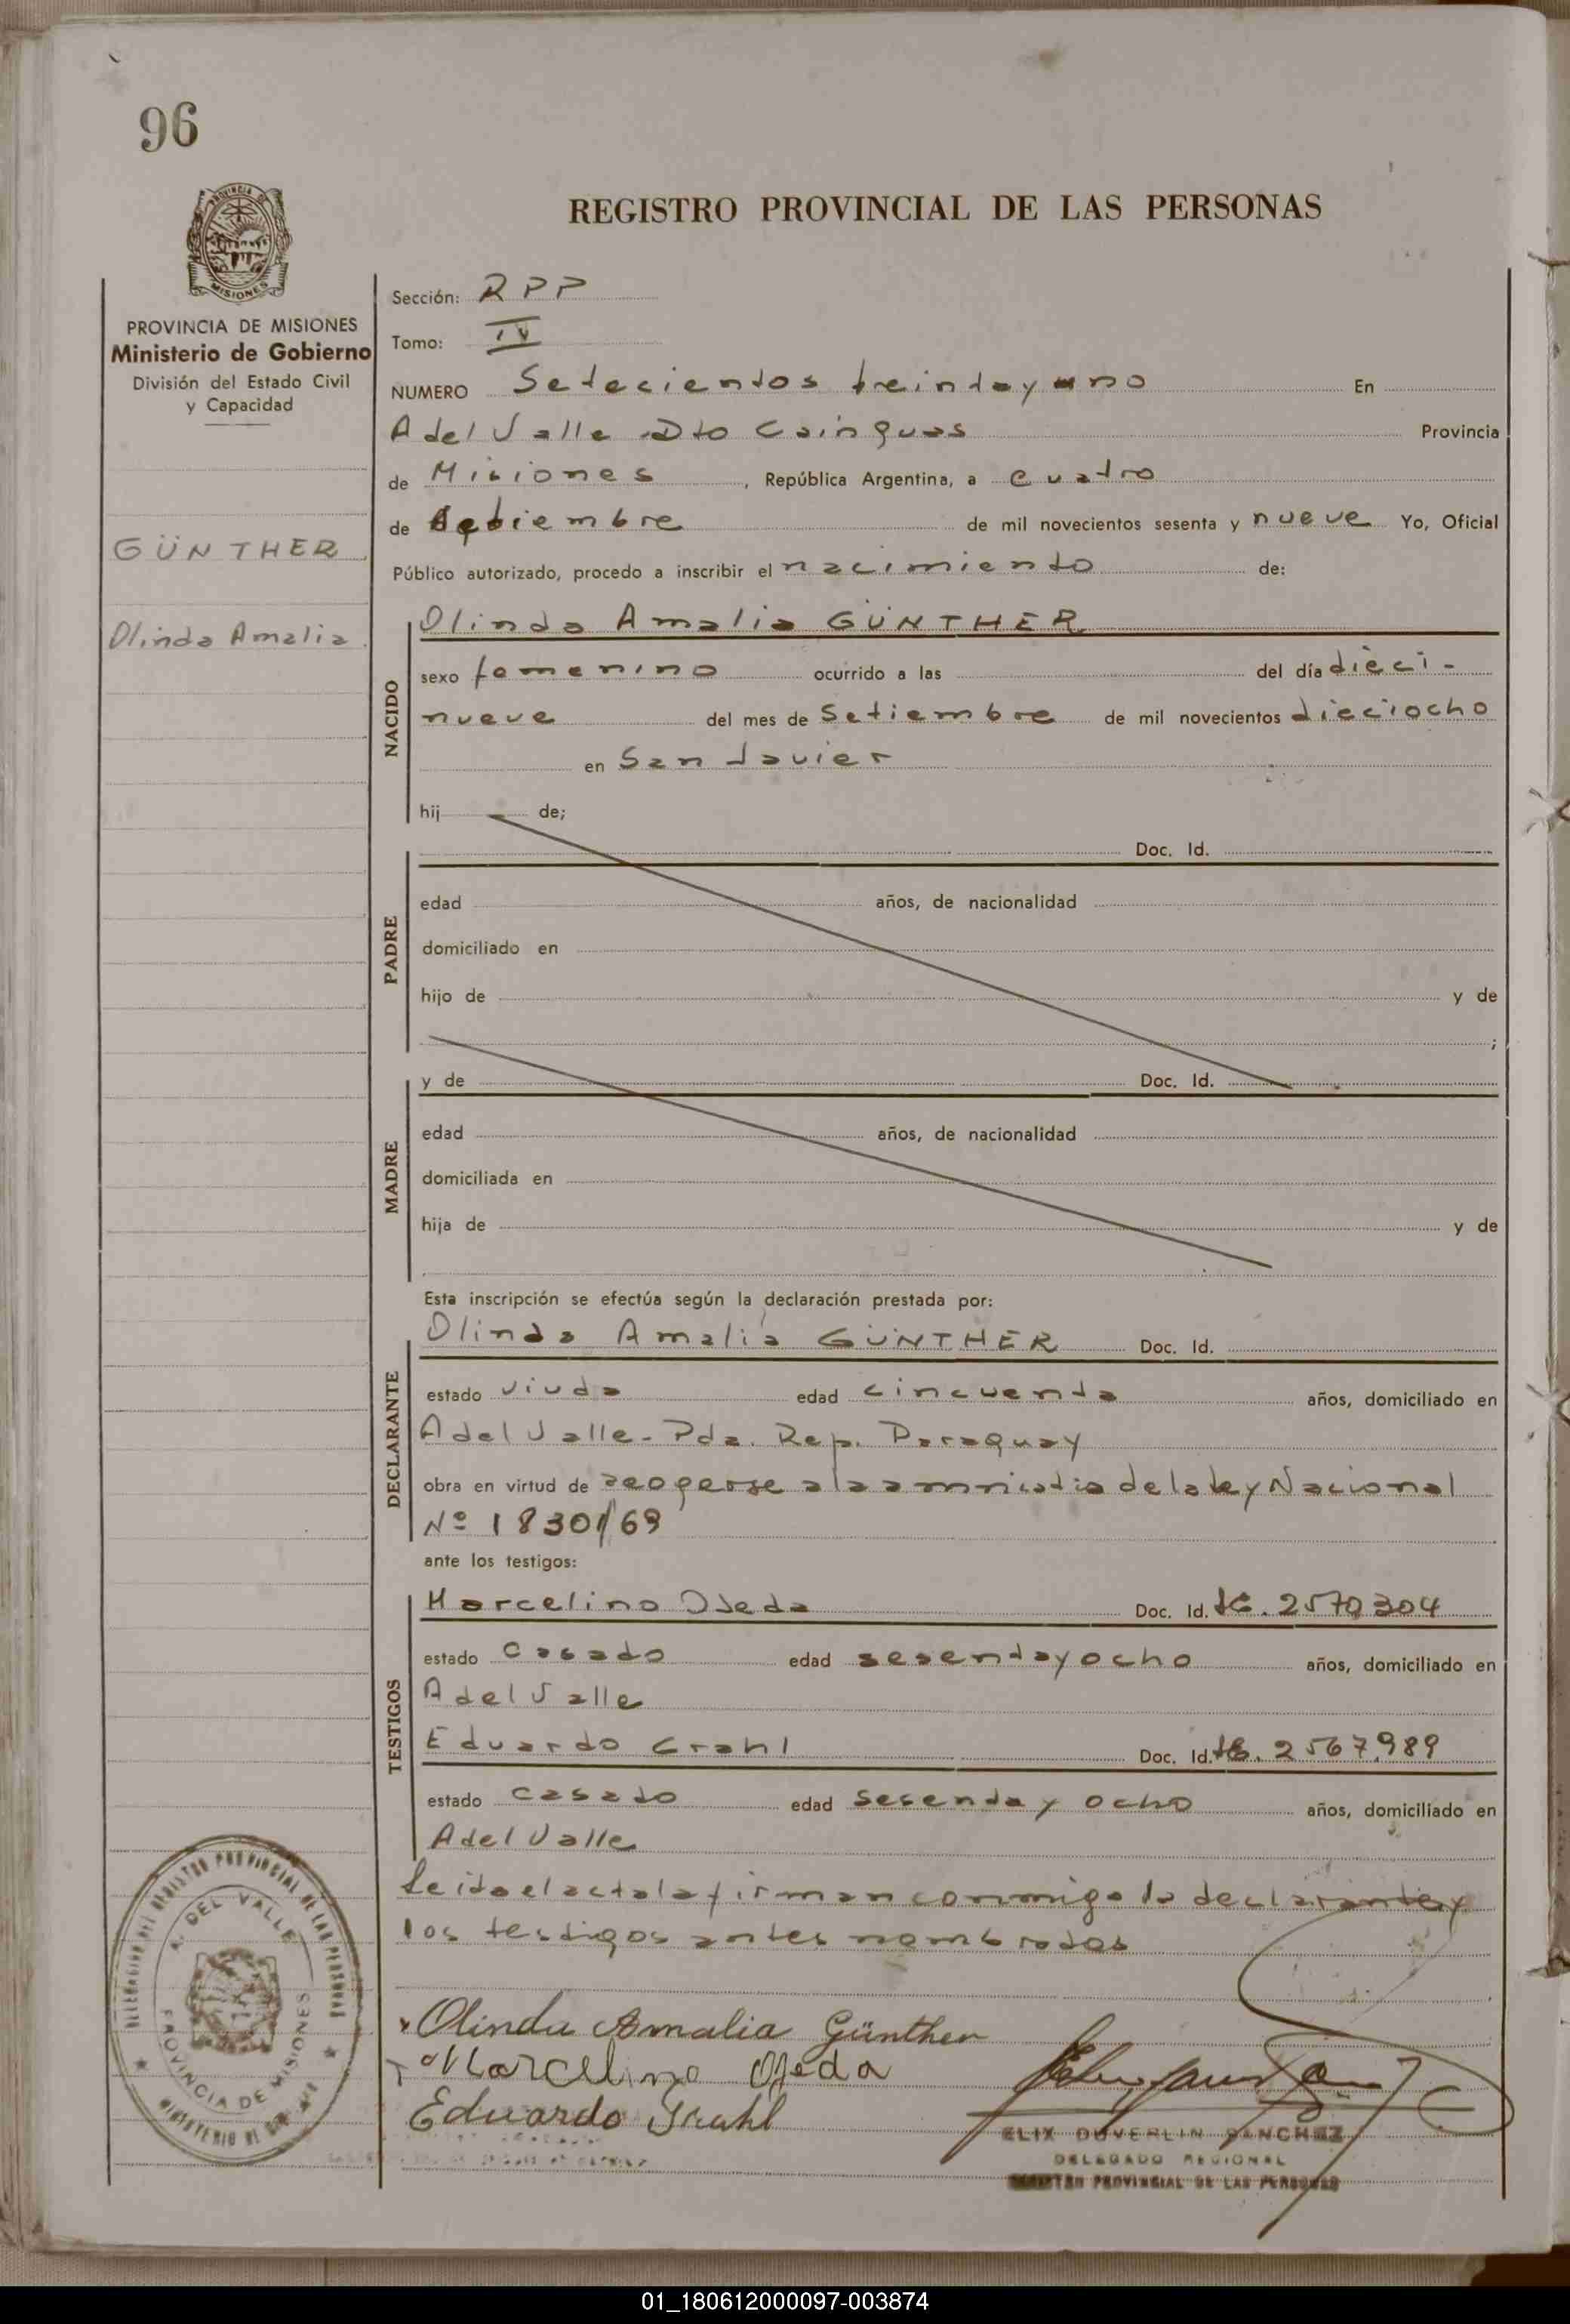 96
REGISTRO PROVINCIAL DE LAS PERSONAS
PROVINCIA
MISIONES
PROVINCIA DE MISIONES
Ministerio de Gobierno
División del Estado Civil
y Capacidad
GÜNTHER
Olinda Amalia
Sección: RPP
Tomo: IV
NUMERO Setecientos treinta y uno En
A del Valle Dto Cainguas Provincia
de Misiones, República Argentina, a cuatro
de Setiembre de mil novecientos sesenta y nueve Yo, Oficial
Público autorizado, procedo a inscribir el nacimiento de:
NACIDO
Olinda Amalia GÜNTHER
sexo femenino ocurrido a las del día dieci-
nueve del mes de Setiembre de mil novecientos dieciocho
en San Javier
hij de;
PADRE
Doc. Id.
edad años, de nacionalidad
domiciliado en
hijo de y de
;
MADRE
y de Doc. Id.
edad años, de nacionalidad
domiciliada en
hija de y de
Esta inscripción se efectúa según la declaración prestada por:
DECLARANTE
Olinda Amalia GÜNTHER Doc. Id.
estado viuda edad cincuenta años, domiciliado en
A del Valle - Pda. Rep. Paraguay
obra en virtud de acogerse a la amnistia de la ley Nacional
Nº 18301/69
ante los testigos:
TESTIGOS
Marcelino Ojeda Doc. Id. 2570304
estado casado edad sesenta y ocho años, domiciliado en
A del Valle
Eduardo Grahl Doc. Id. 2567989
estado casado edad sesenta y ocho años, domiciliado en
A del Valle
Leida el acta la firman conmigo la declarante y
los testigos antes nombrados
Olinda Amalia Günther
Marcelino Ojeda
Eduardo Grahl
ELIX DUVERLIN SANCHEZ
DELEGADO REGIONAL
REGISTRO PROVINCIAL DE LAS PERSONAS
DELEGACION DEL REGISTRO PROVINCIAL DE LAS PERSONAS
A. DEL VALLE
PROVINCIA DE MISIONES
MINISTERIO DE
01_180612000097-003874